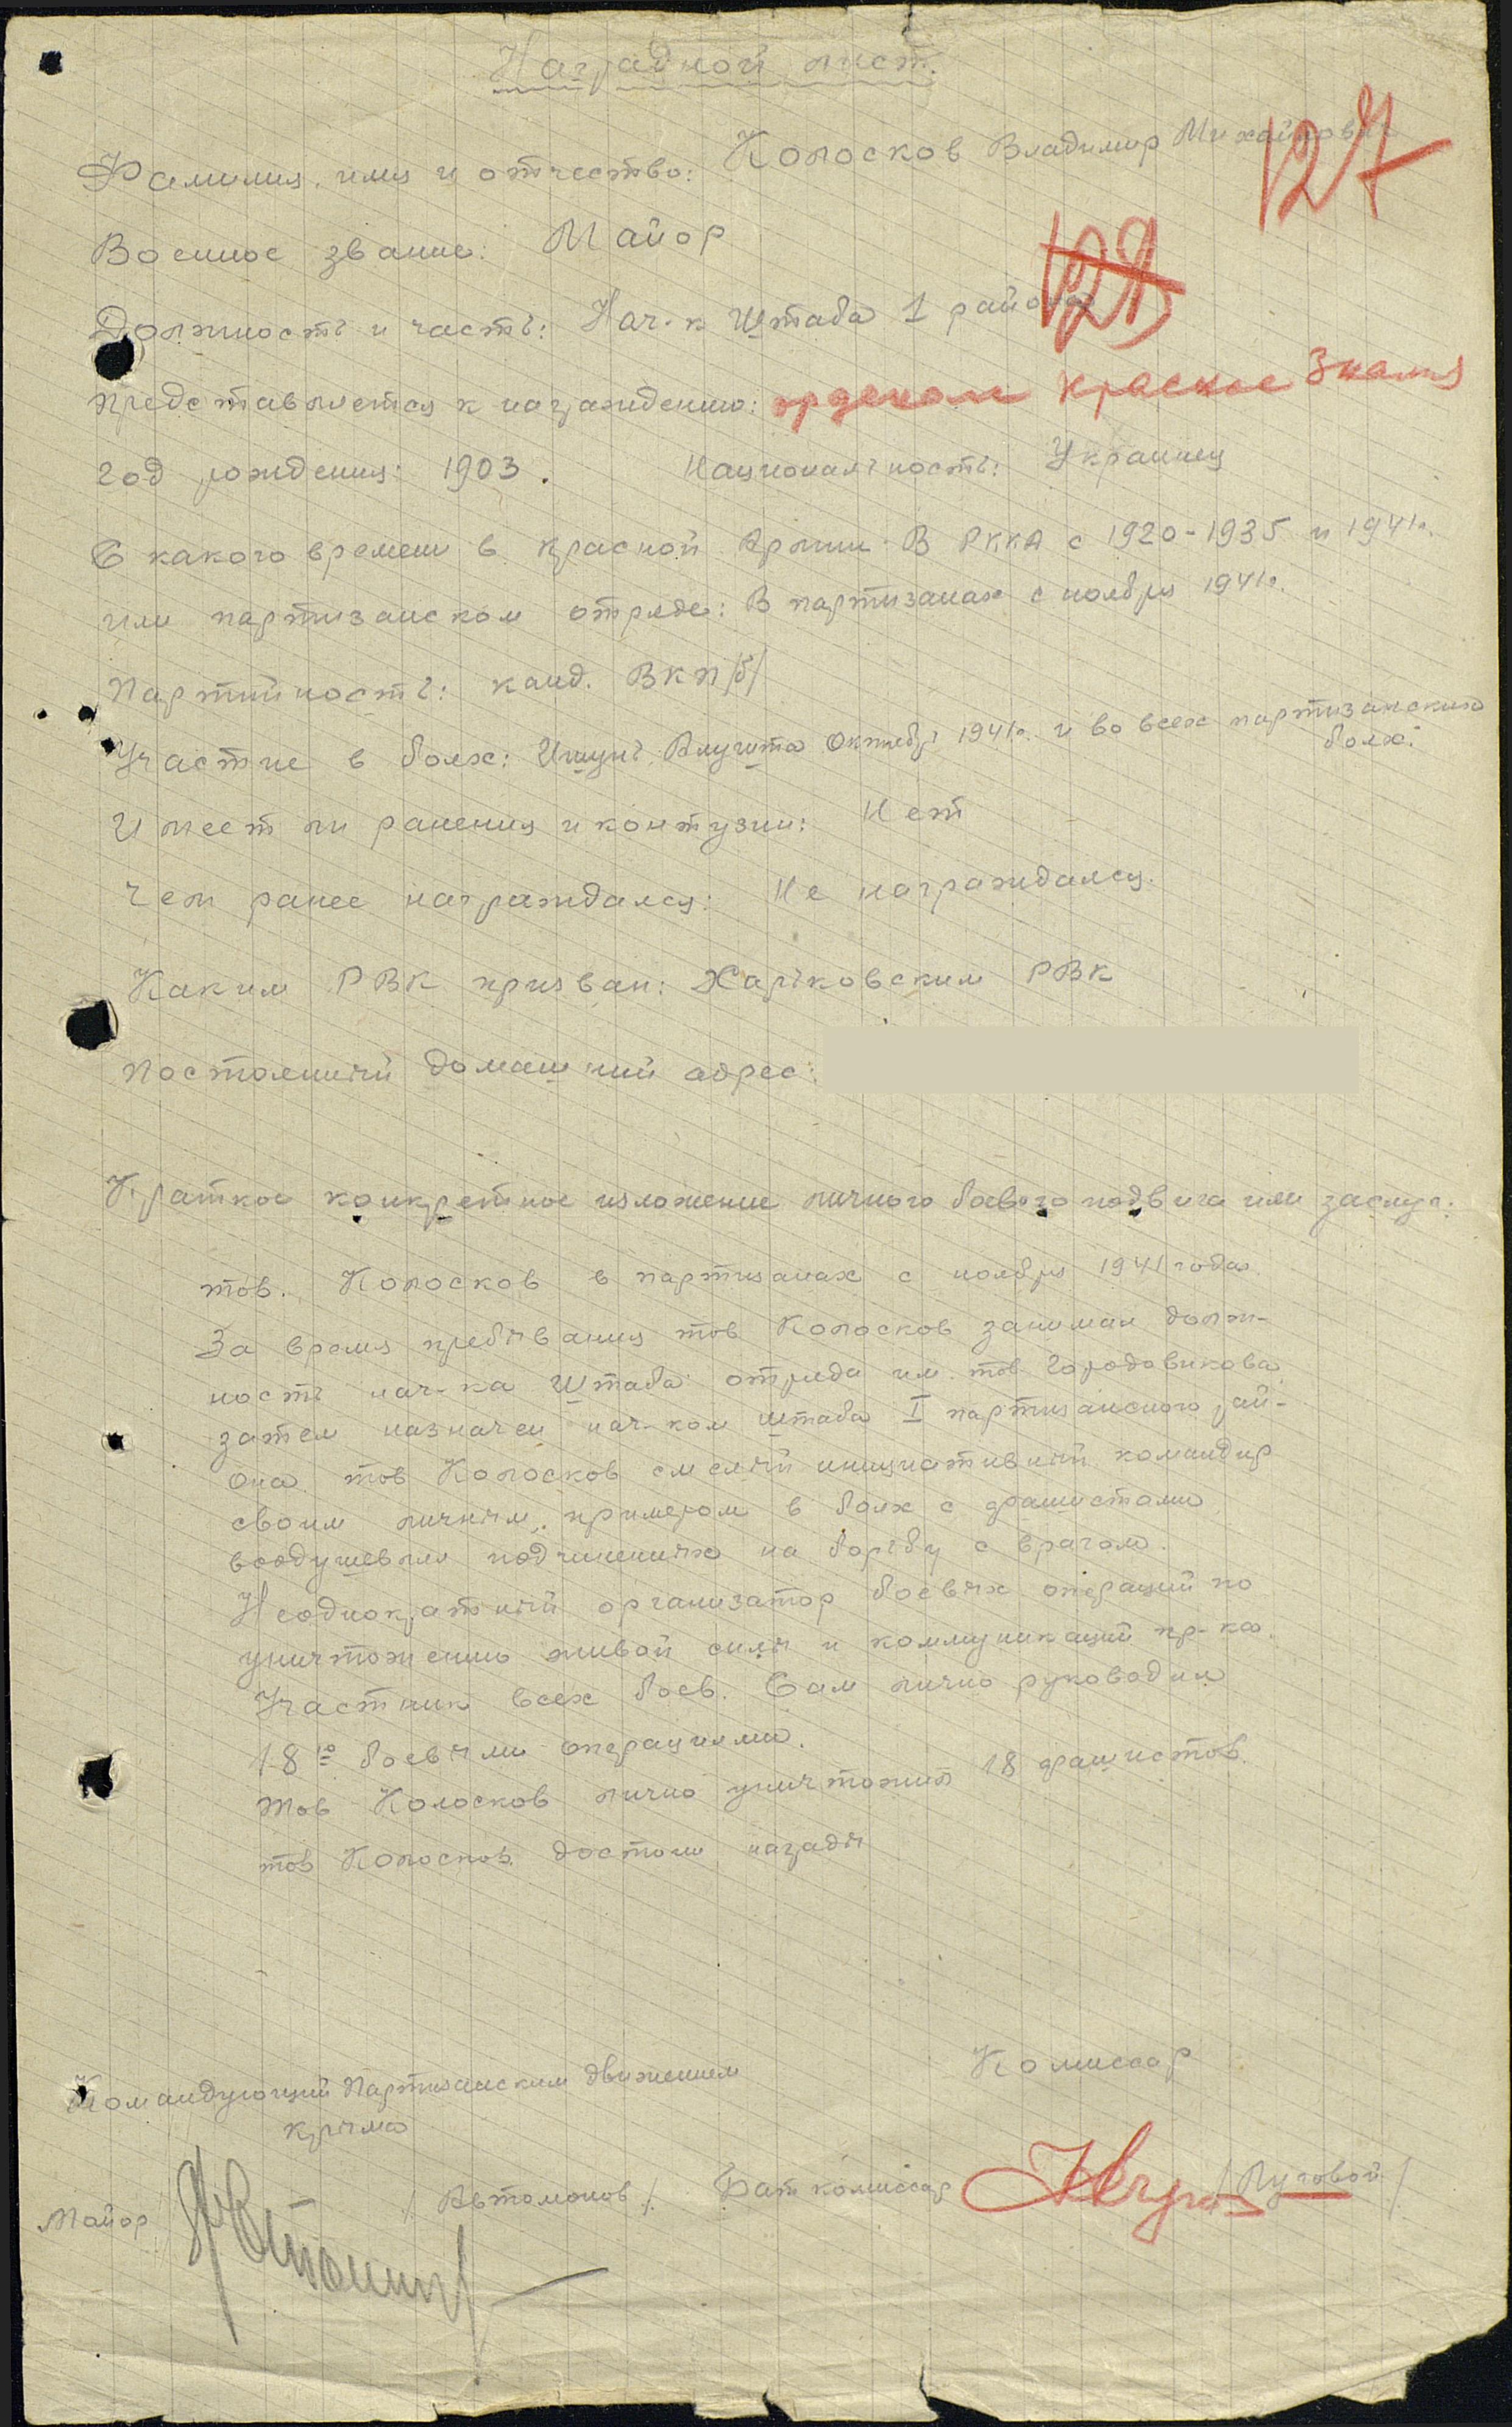 Наградной лист.
127
Фамилия, имя и отчество: Колосков Владимир Михайлович
Военное звание: Майор
129
Должность и часть: Нач-к Штаба 1 района
представляется к награждению: орденом Красное Знамя
Год рождения: 1903. Национальность: Украинец
С какого времени в Красной Армии В РККА с 1920-1935 и 1941г.
или партизанском отряде: В партизанах с ноября 1941г.
Партийность: канд. ВКП/б/
Участие в боях: Ишунь, Алушта Октябрь 1941г. и во всех партизанских
боях.
Имеет ли ранения и контузии: Нет
Чем ранее награждался: Не награждался.
Каким РВК призван: Харьковским РВК
Постоянный домашний адрес:
Краткое конкретное изложение личного боевого подвига или заслуг:
тов. Колосков в партизанах с ноября 1941 года
За время пребывания тов Колосков занимал долж-
ность нач-ка Штаба отряда им. тов Городовикова,
затем назначен нач-ком штаба I партизанского рай-
она. тов Колосков смелый инициативный командир
своим личным примером в боях с фашистами
воодушевлял подчиненных на борьбу с врагом.
Неоднократный организатор боевых операций по
уничтожению живой силы и коммуникаций пр-ка.
Участник всех боев. Сам лично руководил
18ю боевыми операциями.
Тов Колосков лично уничтожил 18 фашистов.
тов Колосков достоин награды
Командующий Партизанским движением
Крыма
Комиссар
Майор /Автомонов/. Бат комиссар /Луговой/